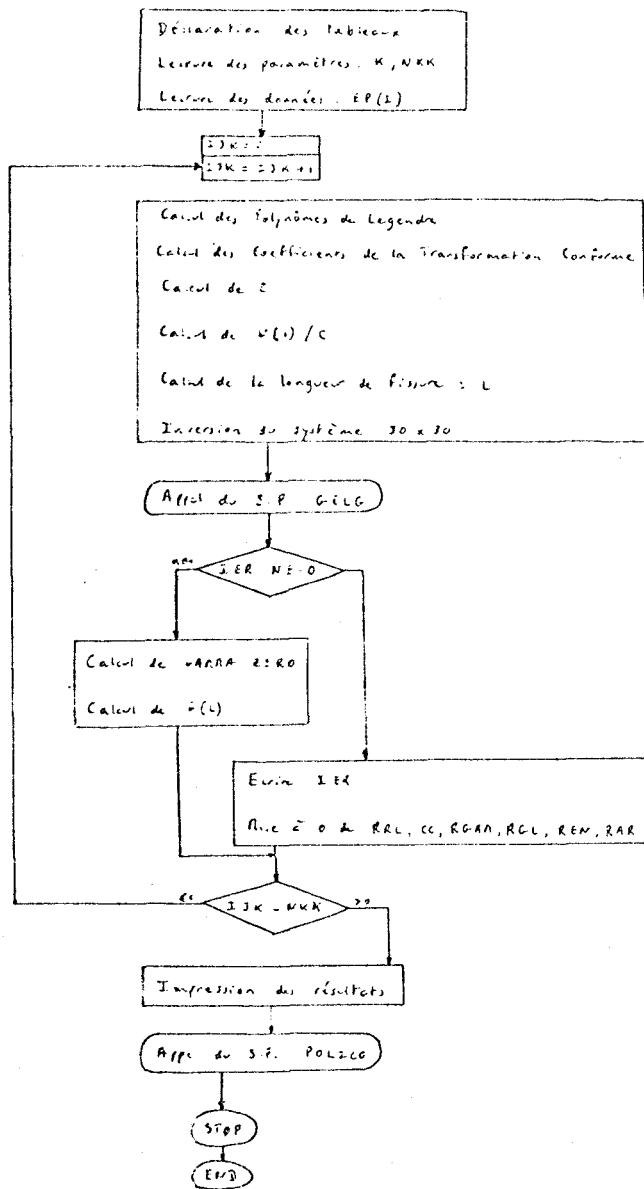 Déclaration des tableaux
Lecture des paramètres. K, NKK
Lecture des données. EP(I)
IJK =
IJK = IJK + 1
Calcul des Polynômes de Legendre
Calcul des Coefficients de la Transformation Conforme
Calcul de
Calcul de / C
Calcul de la longueur de fissure : L
Inversion du système 30 x 30
Appel du S.P GELG
IER NE.O
Calcul de ZERO
Calcul de (L)
Ecrire IER
Mise à 0 de RRL, CC, RGAM, RGL, REN, RAR
IJK - NKK
Impression des résultats
Appel du S.P. POLICG
STOP
END